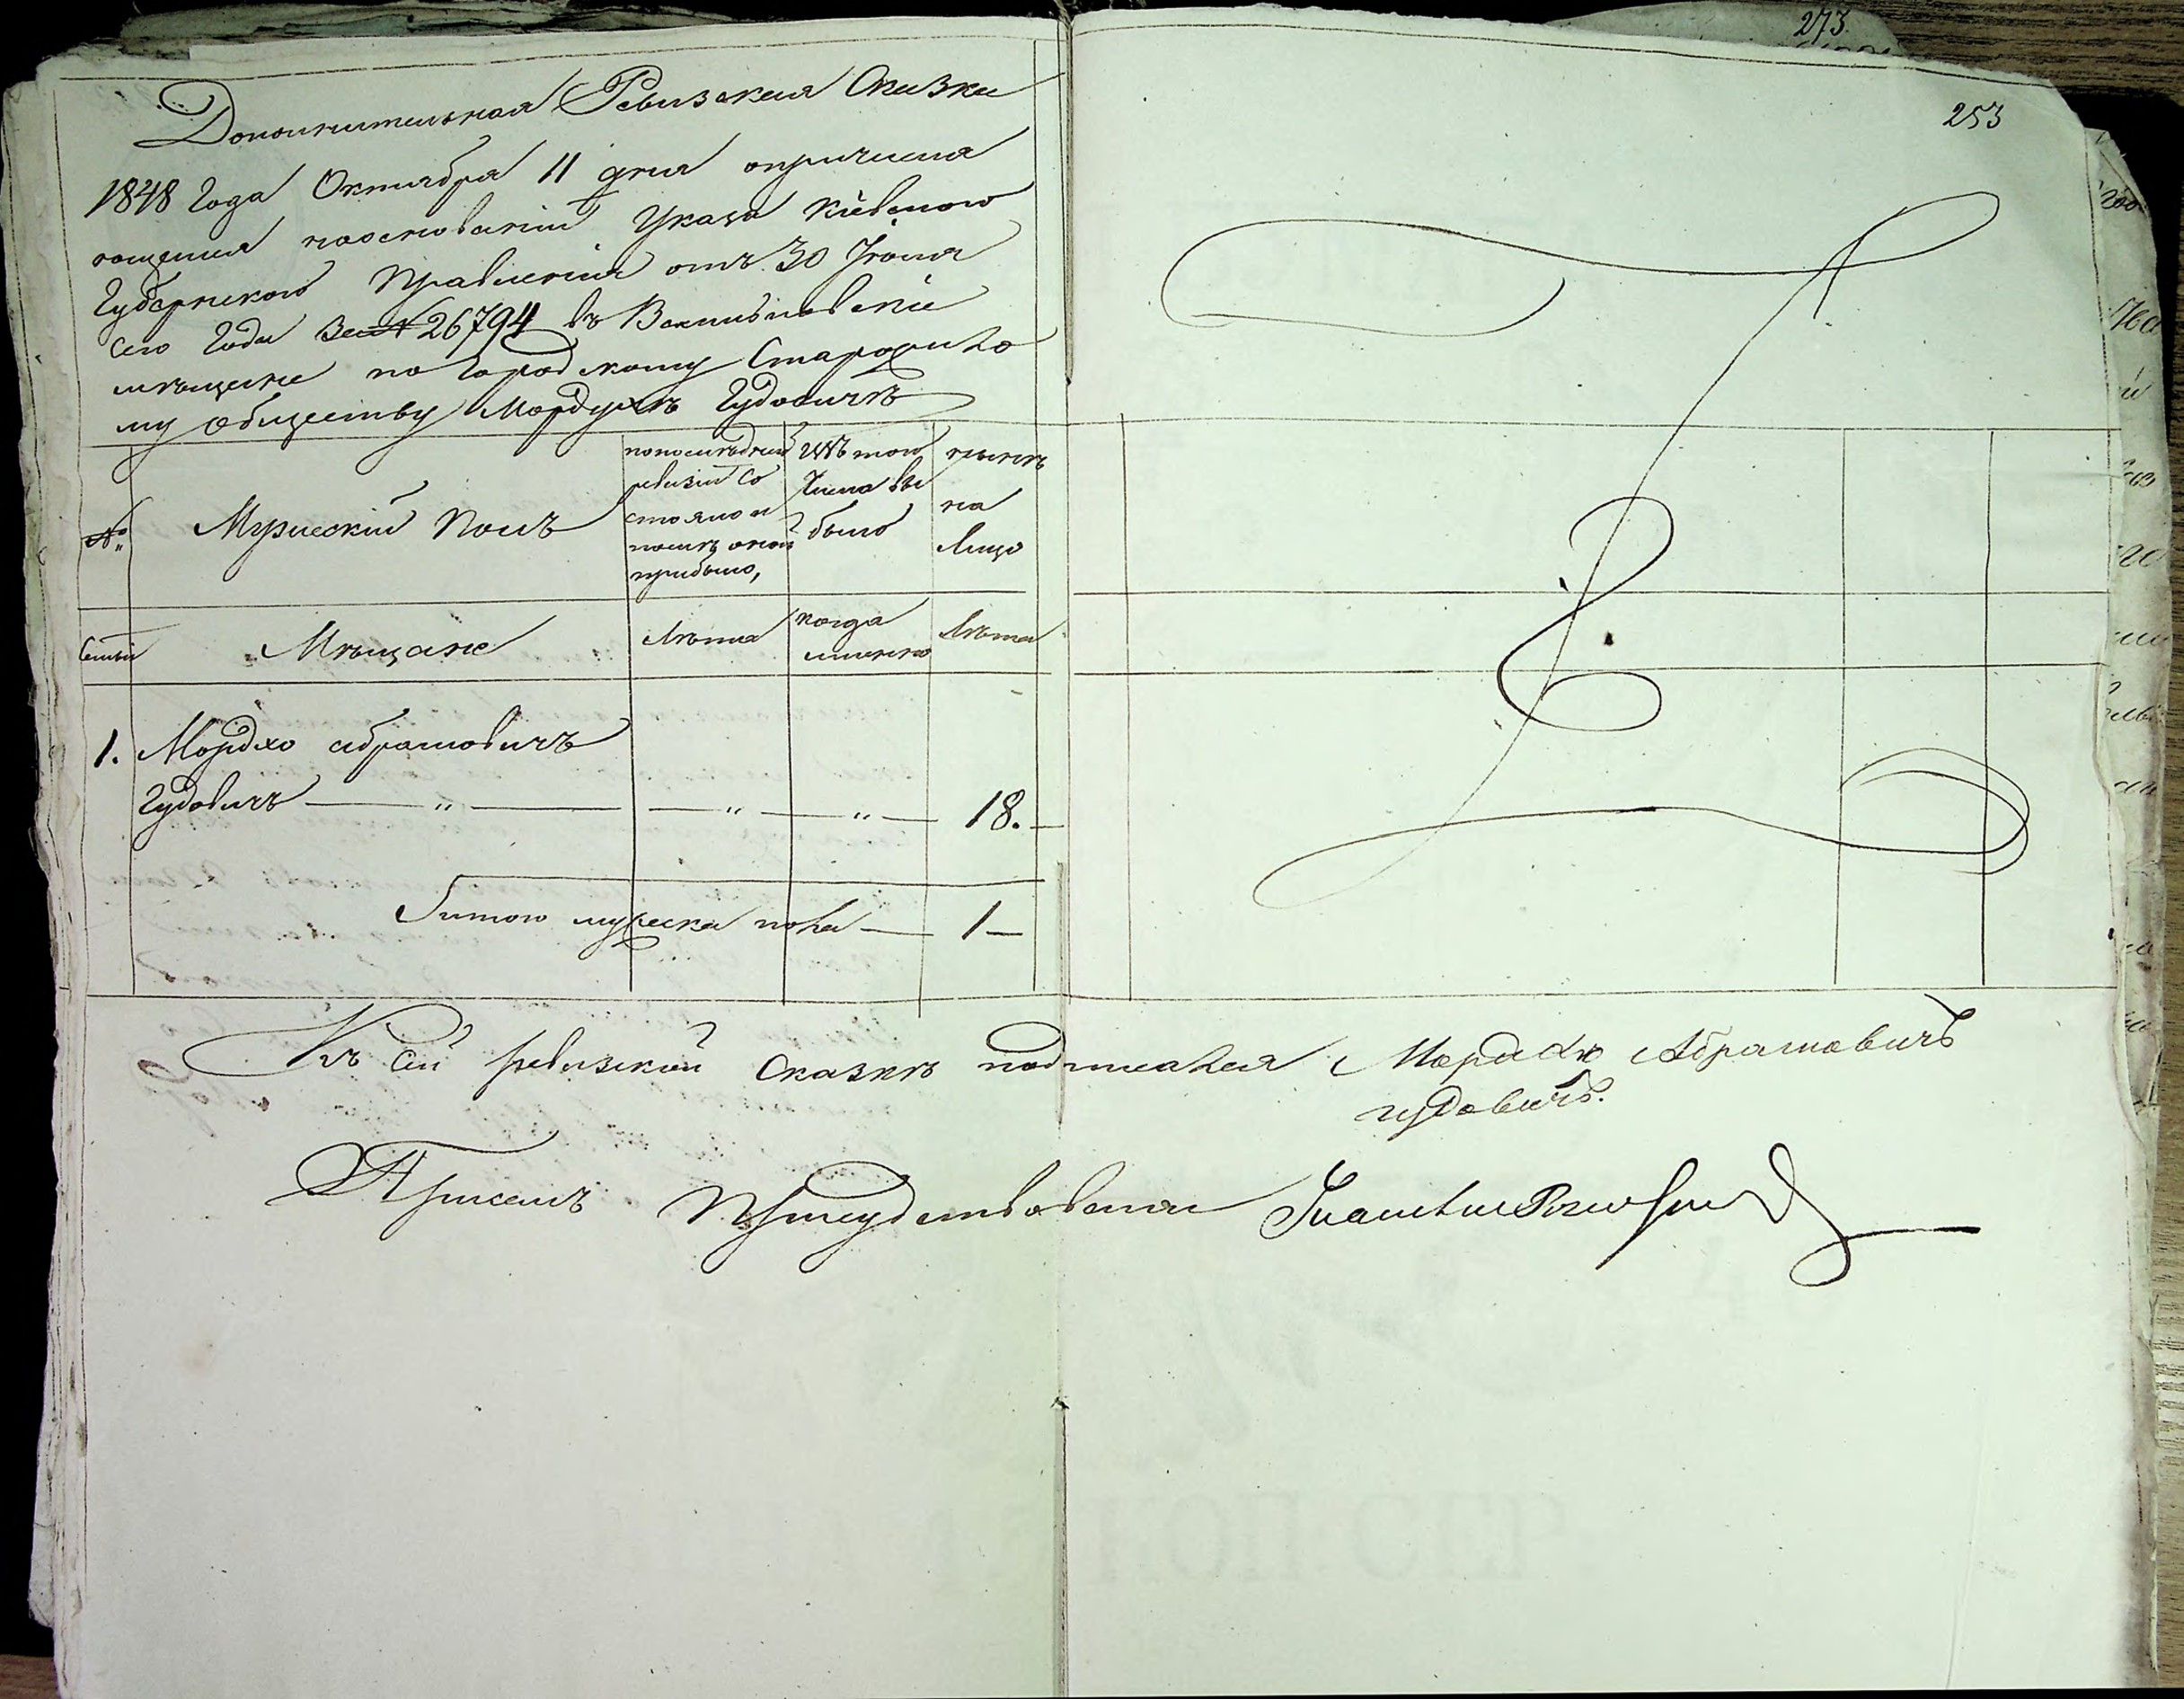 273.
253
Дополнительная Ревизская Сказка
1848 Года Октября 11 дня опричисля
ющемся наосновании Указа Кіевского
Губернского Правленія отъ 30 Іюня
сего Года За № 26794 въ
мещане по Городскому
му обществу Мордухъ Гудовичъ
№ Мужескій Полъ
попоследней ревизіи Состояло и после оной прибыло,
Изъ того Числа выбыло
ныне на Лицо
Семьи Мѣщане Лѣта когда именно Лѣта
1. Мордхо Абрамовичъ
Гудовичъ — „ — — „ — — „ — 18. —
Итого мужеска пола — 1 —
Къ сей ревизской Сказкѣ подписался Мордхо Абрамовичъ
гудовичъ.
При семъ Присудствовали